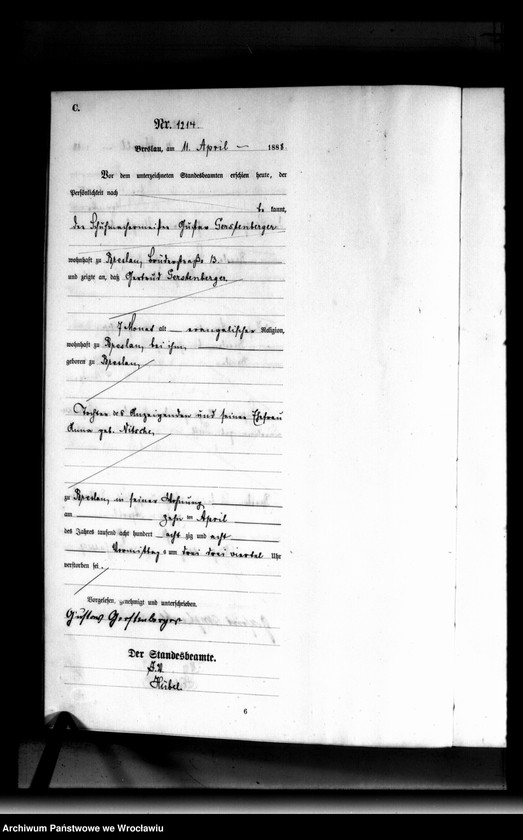 C.
Nr. 1214.
Breslau, am 11. April 1888
Vor dem unterzeichneten Standesbeamten erschien heute, der
Persönlichkeit nach
be kannt,
der Schuhmachermeister Gustav Gerstenberger
wohnhaft zu Breslau, Brüderstraße 13
und zeigte an, daß Gertrud Gerstenberger
7 Monat alt evangelischer Religion,
wohnhaft zu Breslau, bei ihm,
geboren zu Breslau,
Tochter des Anzeigenden und seiner Ehefrau
Anna geb. Nitsche,
zu Breslau, in seiner Wohnung
am zehn ten April
des Jahres tausend acht hundert acht zig und acht
Vormittags um drei drei viertel Uhr
verstorben sei.
Vorgelesen, genehmigt und unterschrieben.
Gustav Gerstenberger
Der Standesbeamte.
J. V.
Hübel.
6
Archiwum Państwowe we Wrocławiu